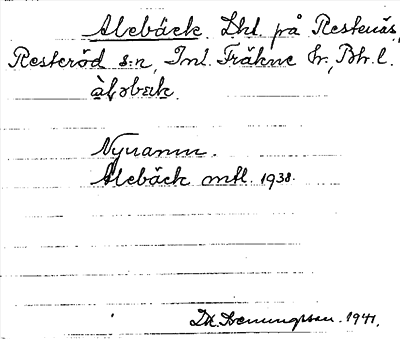 Alebäck. Lht. på Restenäs,
Resteröd s:n, Inl. Fräkne hr, Bh. l.
àləbɛk.
Nynamn.
Alebäck mtl. 1938.
1941.